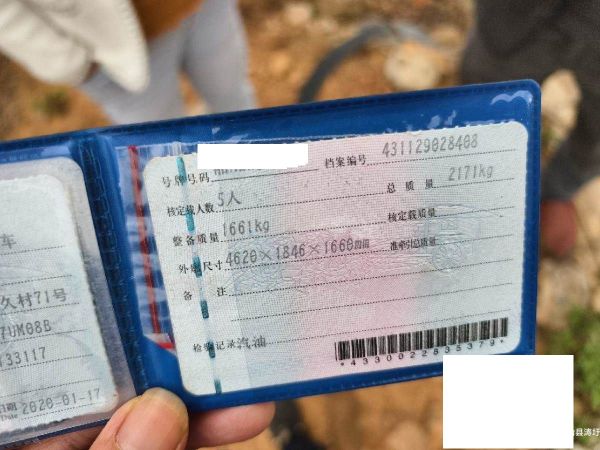 车
久村71号
7UM08B
133117
日期 Date 2020-01-17
号牌号码
档案编号 431129028408
核定载人数 5人
总质量 2171kg
整备质量 1661kg
核定载质量
外廓尺寸 4620×1846×1660mm
准牵引总质量
备注
检验记录 汽油
*4330022835379*
县涛圩